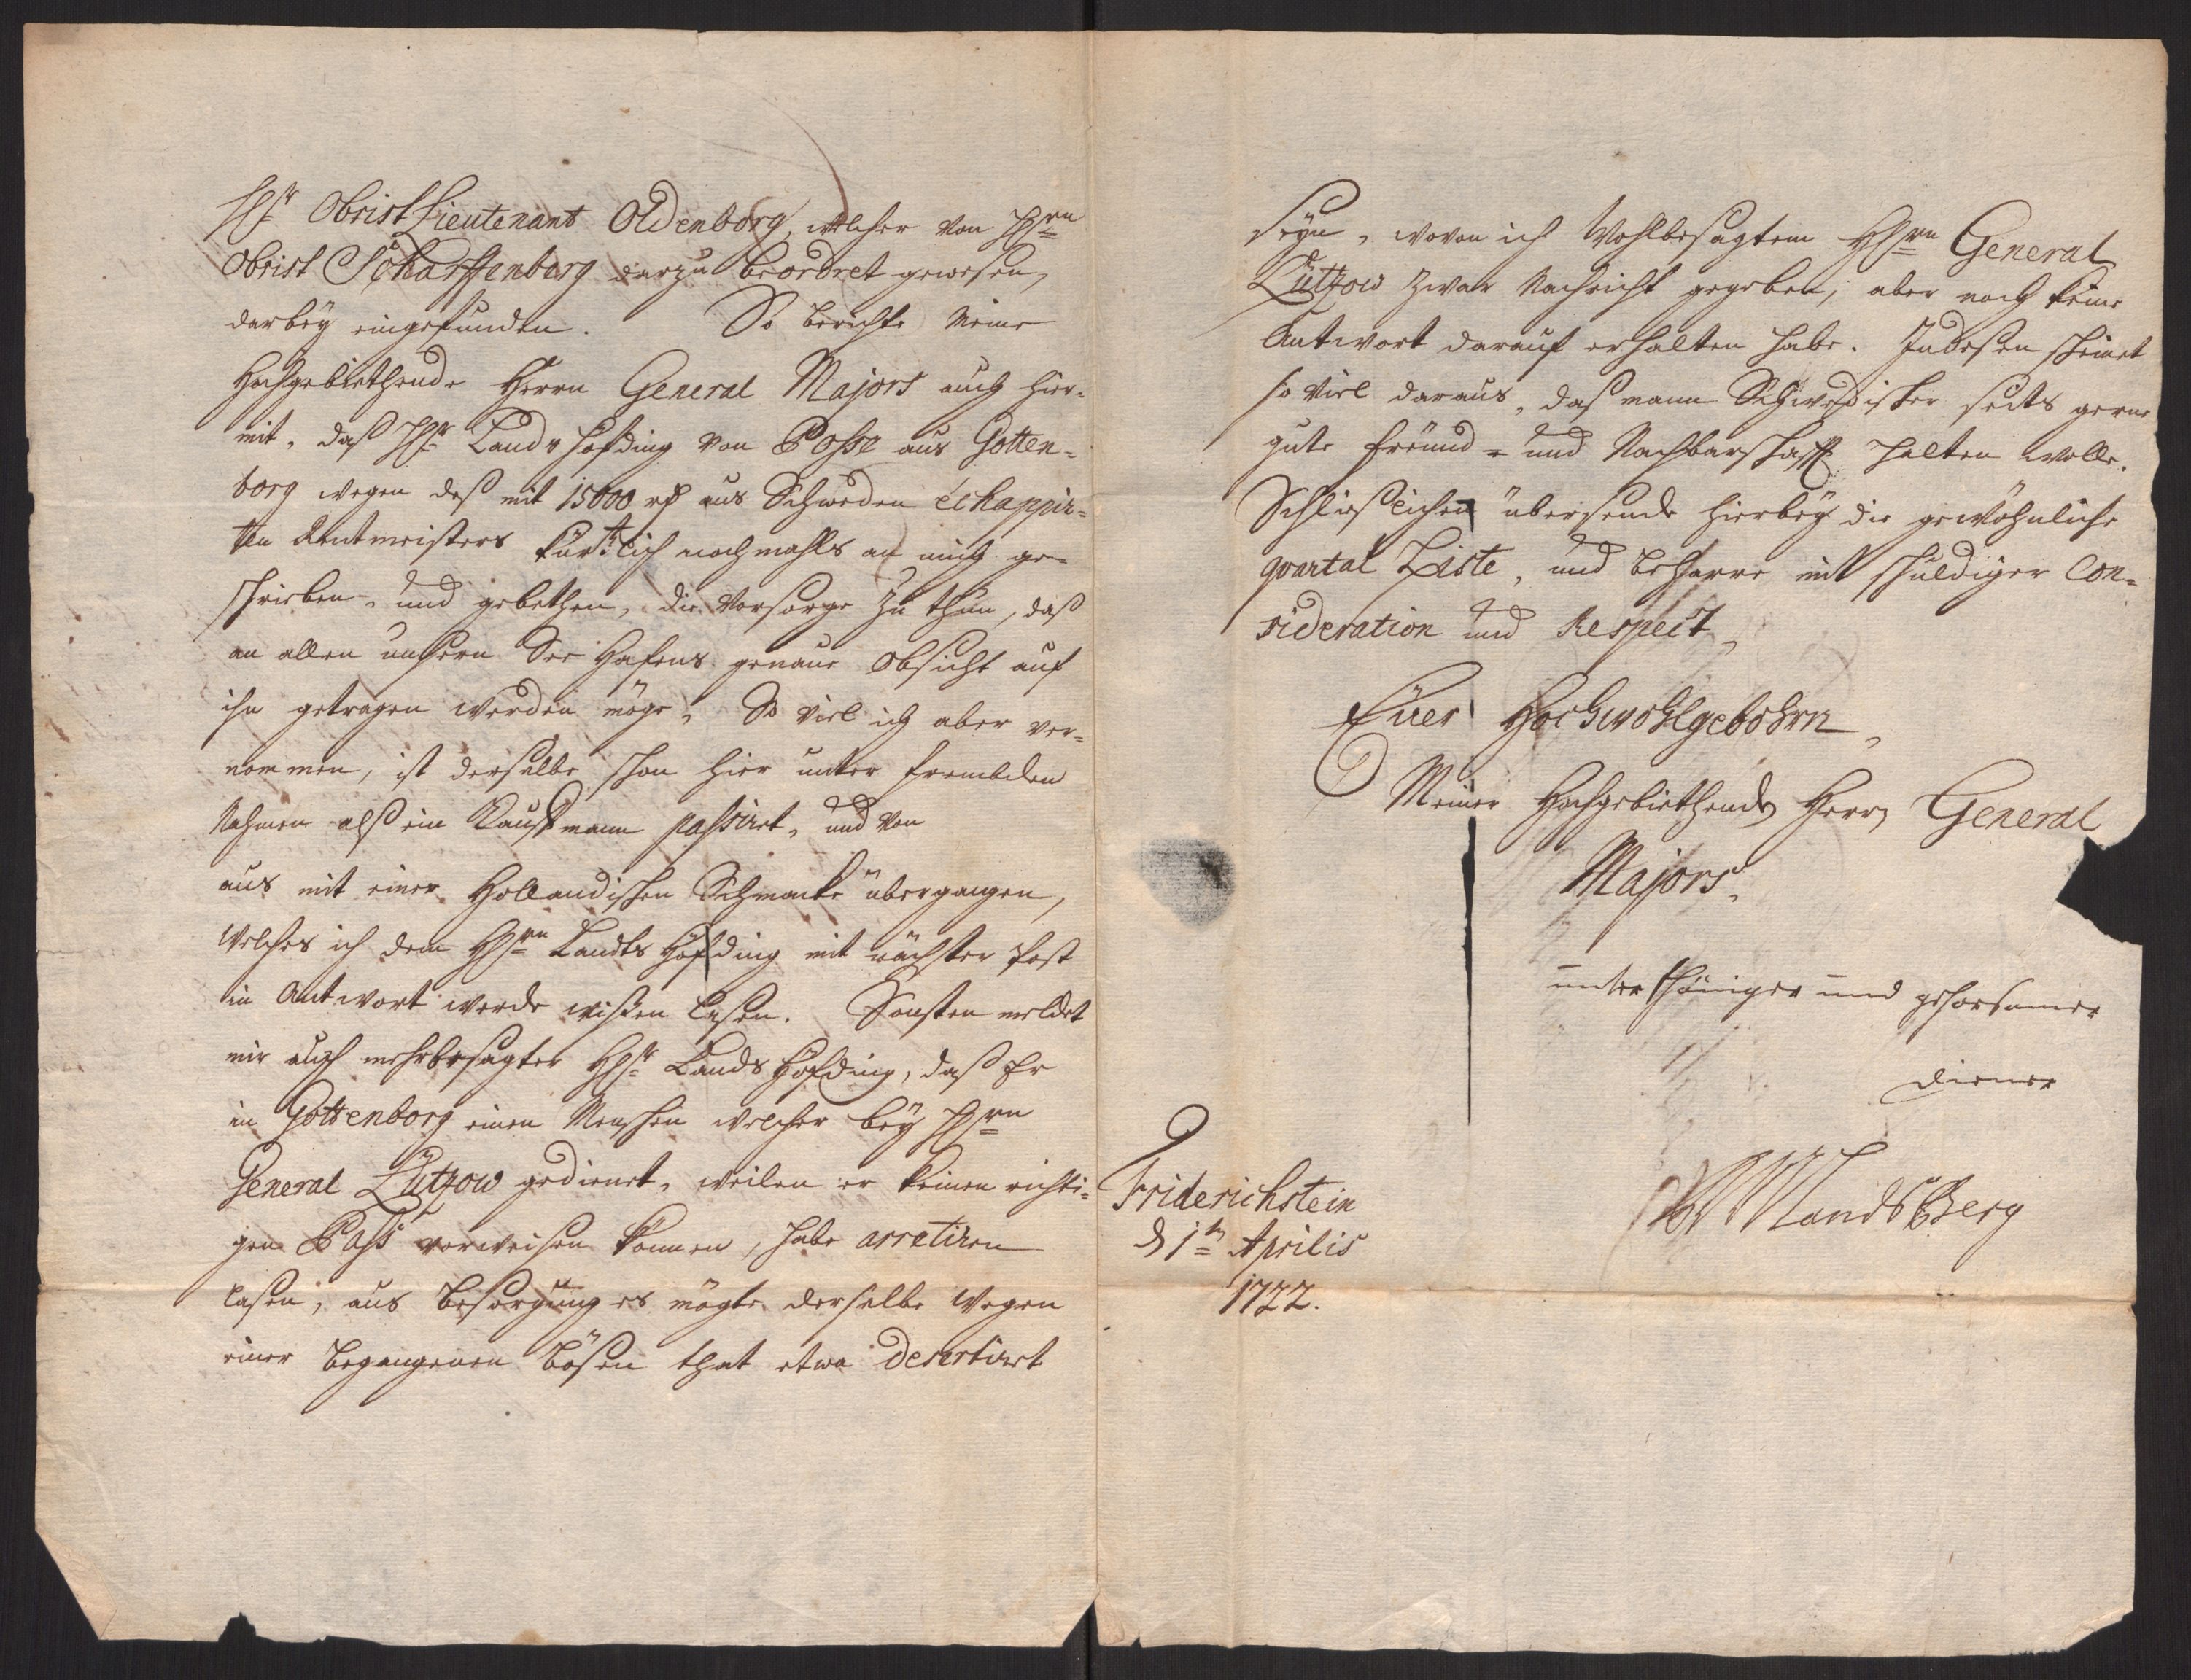 Hr Obrist Lieutenant Oldenborg, welcher von Hrn
Obrist Scharffenberg darzu beordret gewesen,
darbey eingefunden. So berichte Meine
Hochgebiethende Herrn General Majors auch hier-
mit, daß Hr Lands höfding von Posse aus Gotten-
borg wegen deß mit 15000 rß aus Schweden echappir-
ten Rentmeisters kürtzlich nochmahls an mich ge-
schrieben, und gebethen, die Vorsorge zu thun, daß
an allen unsern See Hafens genaue Obsicht auf
ihn getragen werden möge, So viel ich aber ver-
nommen, ist derselbe schon hier unter frembden
Nahmen alß ein Kauffmann passiret, und von
aus mit einer Holländischen Schmacke übergangen,
Welches ich dem Hrn Landts Höfding mit nächster Post
in Antwort werde wißen laßen. Sonsten meldet
mir auch mehrbesagter Hr Lands Höfding, daß Er
in Gottenborg einen Menschen welcher bey Hrn
General Lützow gedienet, weilen er keinen richti-
gen Pass vorweisen können, habe arretiren
laßen, aus besorgung es mögte derselbe Wegen
einer begangenen bösen that etwa desertiret
seyn, wovon ich Wohlbesagtem Hrn General
Lützow zwar Nachricht gegeben, aber noch keine
Antwort darauf erhalten habe. Indeßen scheinet
so viel daraus, daß mann Schwedischer seits gerne
gute freund- und Nachbarschafft halten wolle.
Schließlichen übersende hierbey die gewöhnliche
quartal Liste, und beharre mit schuldiger Con-
sideration und Respect,
Euer Hochwohlgebohrn
Meiner Hochgebiethende Herrn General
Majors,
unterthäniger und gehorsamer
Diener
Friderichstein
d 1ten Aprilis
1722.
Landsberg